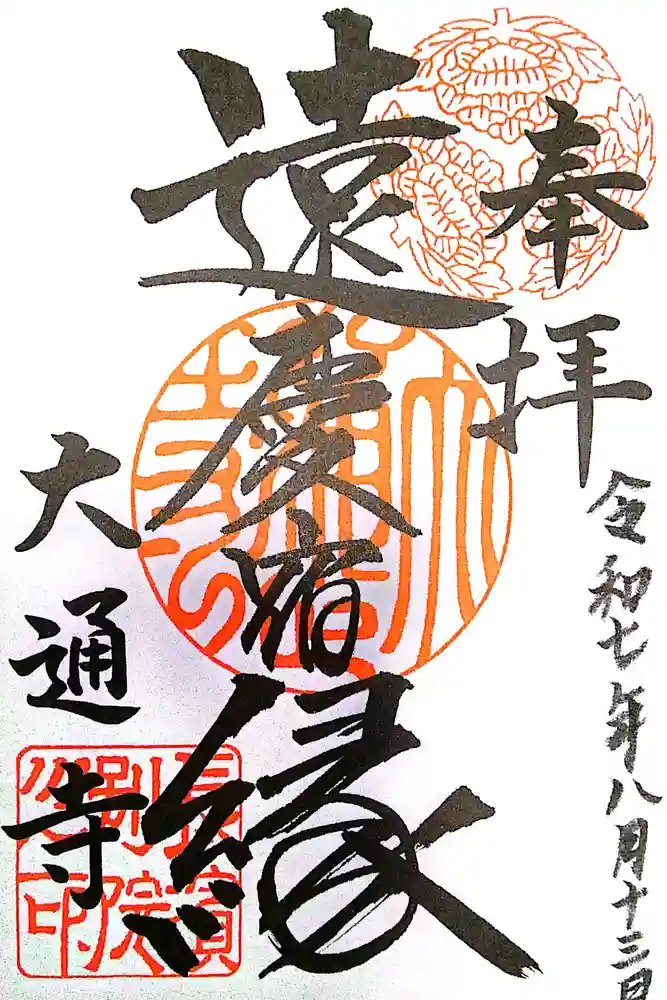 奉拝
令和七年八月十三日
遠慶宿縁
大通寺
長濱
別院
之印